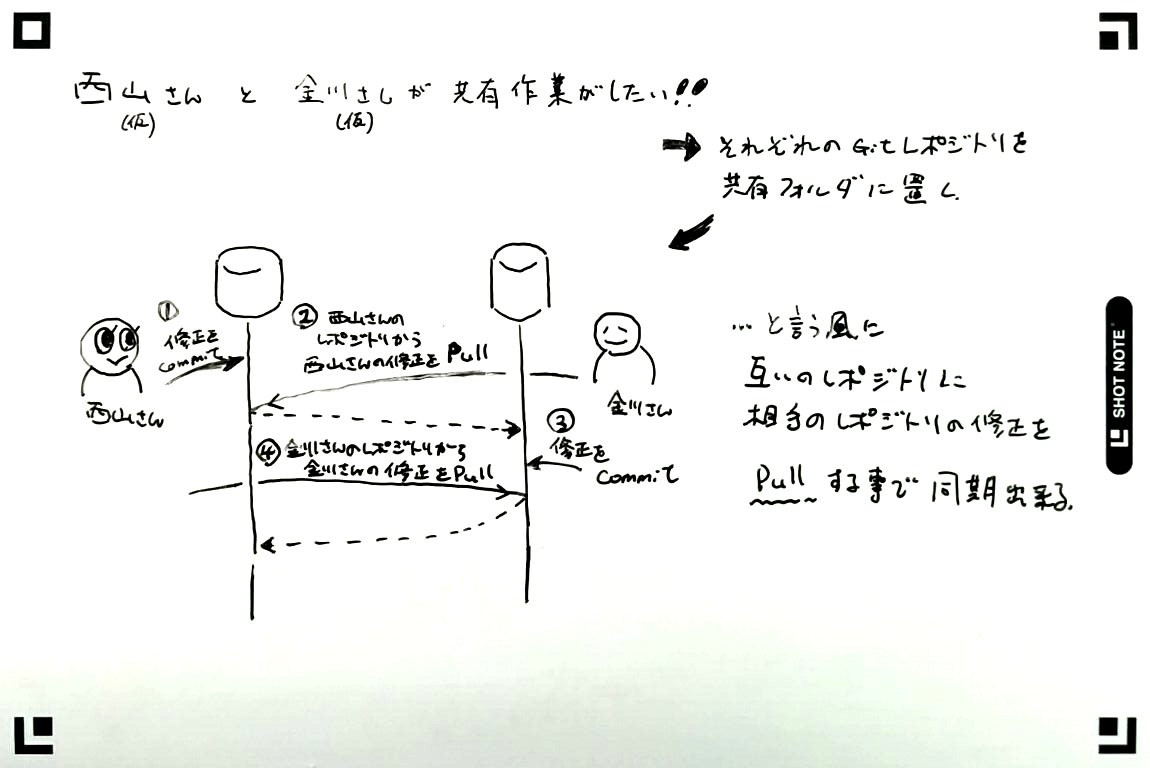 西山さん と 金川さんが 共有作業がしたい!!
(仮) (仮)
→ それぞれの Gitレポジトリを
共有フォルダに置く.
①
修正を
commit
西山さん
② 西山さんの
レポジトリから
西山さんの修正を Pull
金川さん
③
修正を
commit
④ 金川さんのレポジトリから
金川さんの修正をPull
…と言う風に
互いのレポジトリに
相手のレポジトリの修正を
Pull する事で 同期出来る.
SHOT NOTE